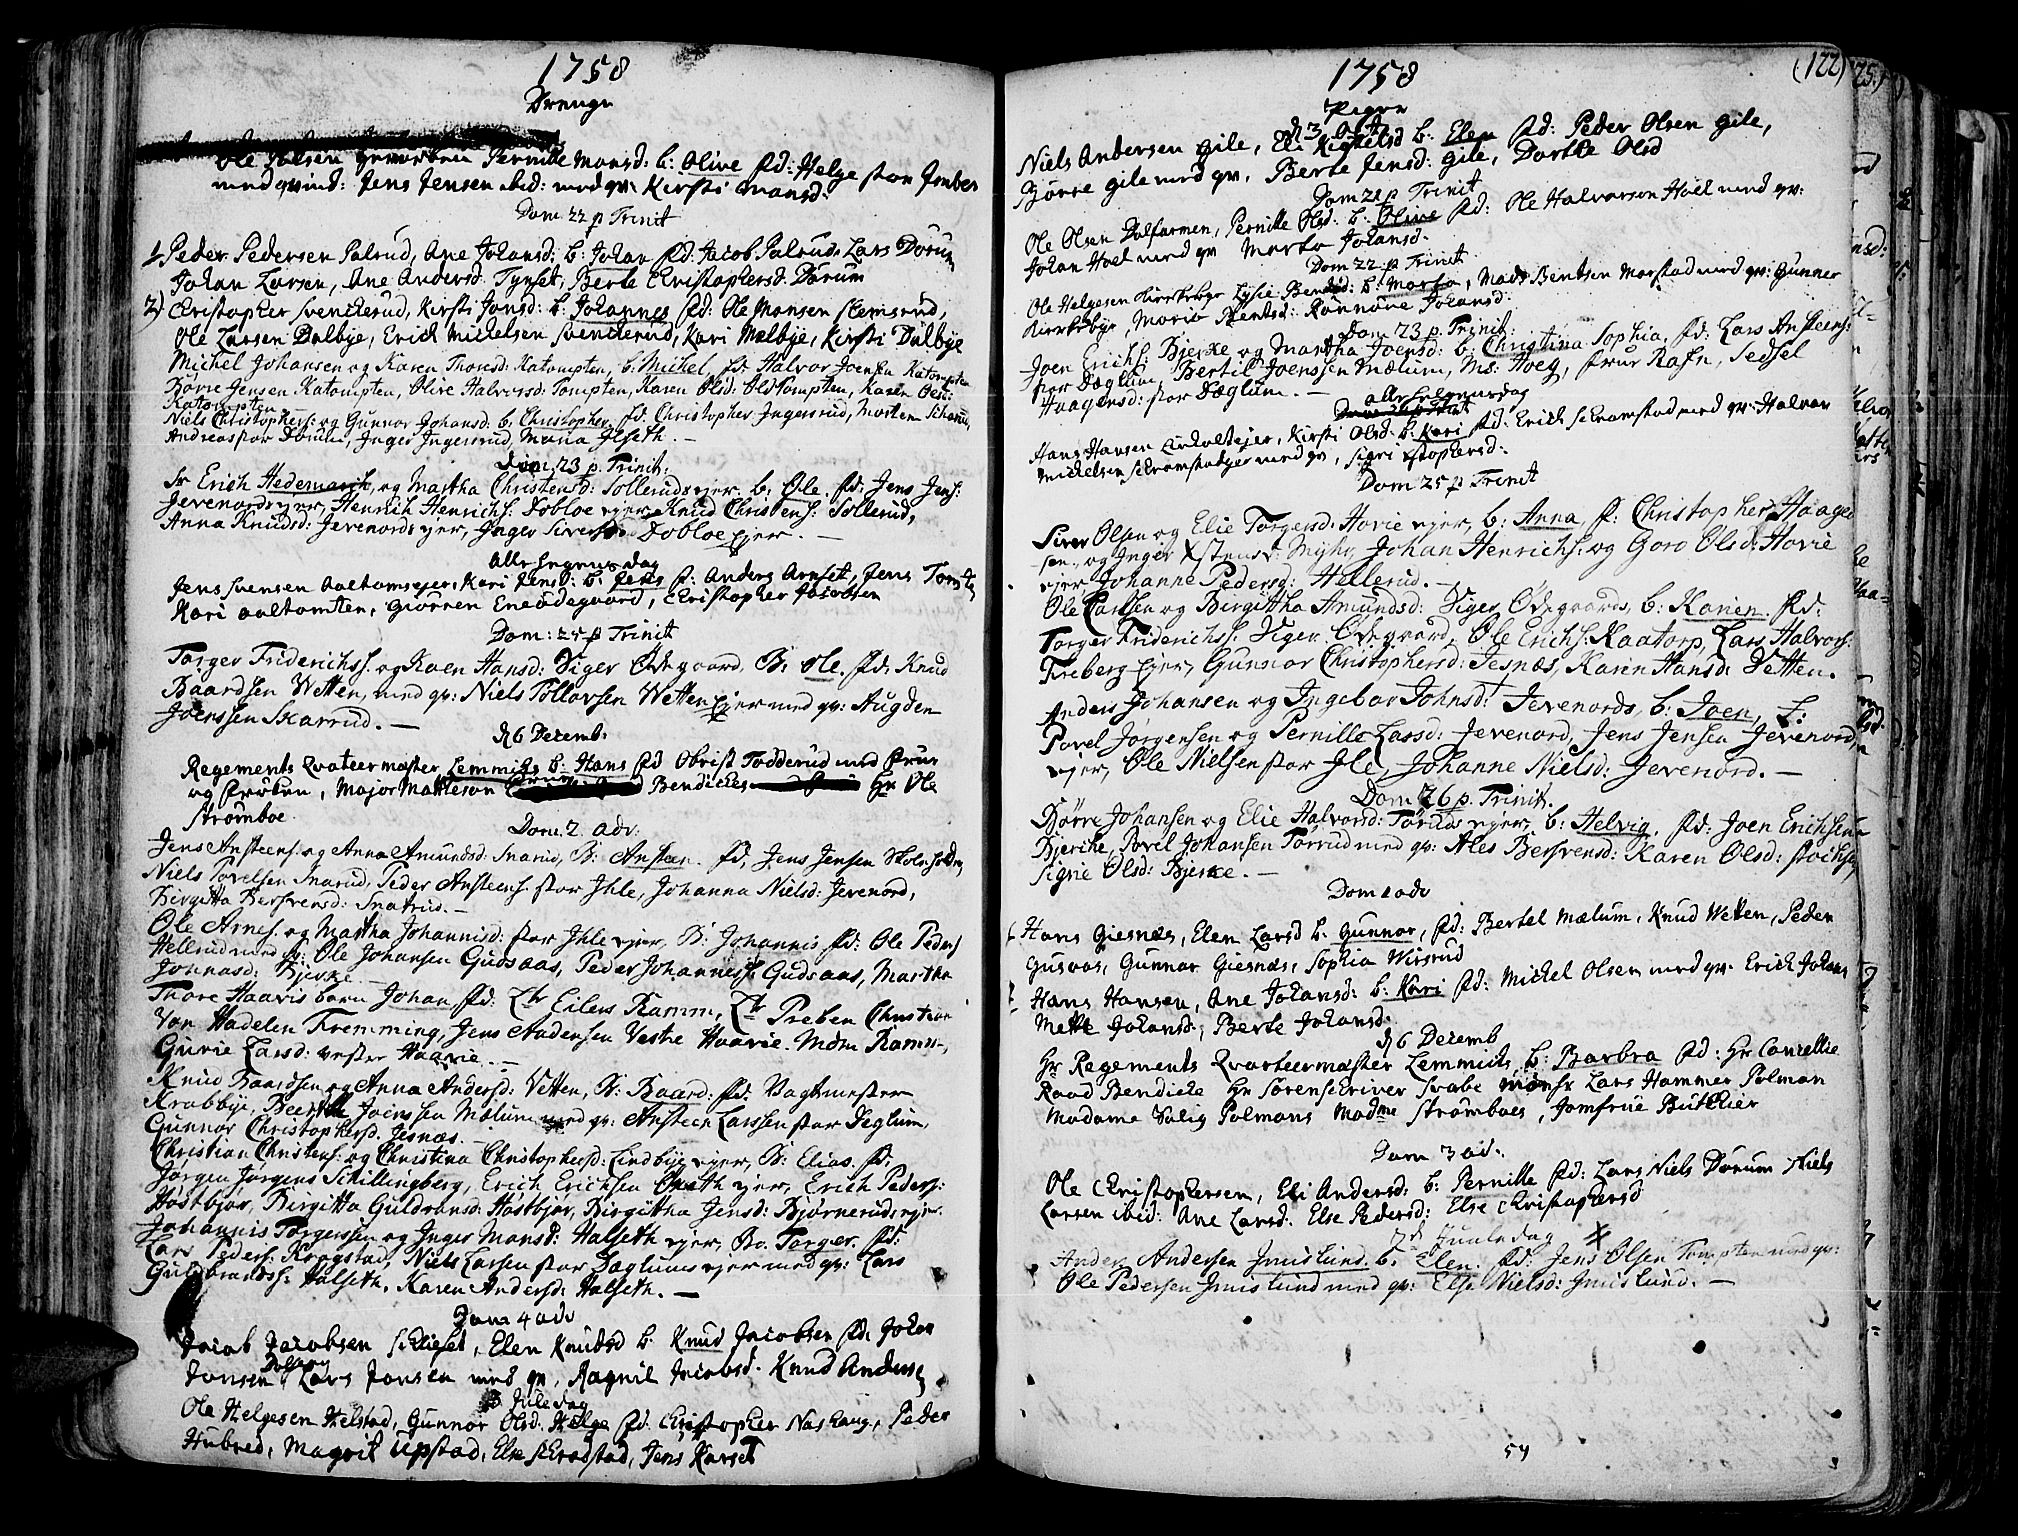 1758
Drenge
Ole Pernille Monsd: b: Olive fd: Helge stor Imber
med qvind: Jens Jensen ibid: med qv: Kirsti Monsd:
Dom: 22 p Trinit
1. Peder Pedersen Palrud, Ane Johansd: b: Johan fd: Jacob Palrud, Lars Dorum
Johan Larsen, Ane Andersd Tynset, Berte Christophersd: Dorum
2) Christopher Svenckerud, Kirsti Jonsd: b: Johannes fd: Ole Monsen Stemsrud,
Ole Larsen Dalbye, Erick Mickelsen Svenckerud, Kari Melbye, Kirsti Dalbye
Michel Johansen og Karen Thoresd: Katompten, b: Michel, fd: Halvor Joensen Katompten
Børre Jensen Katompten, Olive Halvorsd: Tompten, Karen Olsd: Tompten, Karen Olsd:
Katompten
Niels Christophers: og Gunnor Johansd: b: Christopher, fd: Christopher Ingersrud, Morten
Andreas stor Dorum, Inger Ingersrud, Maria Ilseth. –
Dom: 23 p. Trinit:
Sr Erich Hedemarch, og Martha Christensd: Sollerudsejer. b: Ole. fd: Jens Jens:
Jevenordsejer, Henrich Henrichs: Dobloe ejer, Knud Christens: Sollerud,
Anna Knudsd: Jevenordsejer, Inger Dobloe Ejer. –
Alle helgens dag
Jens Svensen Aaltomsejer, Kari Jensd: b: Jens f: Anders Arnset, Jens Tomt
Kari Aaltomten, Giørren Eneødegaard, Christopher Jacobsen
Dom: 25 p Trinit
Torger Friderichss. og Karen Hansd: Viger Ødegaard, B: Ole. fd: Knud
Baardsen Wetten, med qv: Niels Tollovsen Wetten Ejer med qv: Augden
Joenssen Skarrud. –
d 6 Decemb:
Regements Qvateermæster Lemmichs b: Hans fd Obrist Todderud med Frue
og Frøken, Major Matteson Bendickes Hr Ole
Strømboe.
Dom. 2. adv:
Jens Ansteens. og Anna Amundsd: Snarud, B: Ansteen. fd, Jens Jensen Skoleholder,
Niels Povelsen Snarud, Peder Ansteens: stor Ihle, Johanna Nielsd: Jevenord,
Birgitta Bersvensd: Snarud. –
Ole Arnes. og Martha Johannisd: stor Ihle ejer, B: Johannis fd: Ole Peders
Hellerud med qv: Ole Johansen Gudsaas, Peder Johanness: Gudsaas, Martha
Jonnasd: Bjerke. –
Thore Haavis barn Johan fd: Lt: Eilers Ramm, Lt: Preben Christian
Von Hadelen Fremming, Jens Andersen Vestre Haavie. Mdm Ramm,
Gurie Larsd: vester Haavie. –
Knud Baardsen og Anna Andersd: Vetten, B: Baard: fd: Vagtmester
Krabbye, Joenssen Mælum med qv: Ansteen Larssen stor Deglum,
Gunnor Christophersd. Jesnæs. –
Christian Christens: og Christina Christophersd: Lindbye ejer, B: Elias. fd:
Jørgen Jørgens Schillingberg, Erich Erichsen Opseth ejer, Erich Peders:
Høstbjør, Birgitta Guldransd: Høstbjør, Birgittha Jensd: Bjørnerudsejer.
Johannis Torgerssen og Inger Monsd: Halseth ejer, B: Torger. fd:
Lars Peders: Krogstad, Niels Larsen stor Daglums ejer med qv: Lars
Guldbrandss: Halseth, Karen Andersd: Halseth. –
Dom 4 adv
Jacob Jacobsen Scheset, Elen Knudsd b: Knud Jacobsen fd. Johan
Jonsen, Lars Jonsen med qv, Ragnil Jacobsd. Knud Anders
3 Juledag
Ole Helgesen Helstad, Gunnor Olsd: Helge fd: Christopher Nashaug, Peder
Hubred, Magrit Upstad, Else Skradstad, Jens Karset
1758
Piger
(122)
d 3 Oct
Niels Andersen Gile, Eli Kieldsd b: Elen fd: Peder Olsen Gile,
Børre Gile med qv, Berte Jensd: Gile, Dorthe Olsd
Dom 21 p Trinit
Ole Olsen Dalfarmen, Pernille Olsd: b: Olive fd: Ole Halvorsen Hoel med qv:
Johan Hoel med qv Morta Johansd:
Dom 22 p Trinit
Ole Helgesen Kirckebye Lysie Bendsd: b: Morta, Mads Bentsen Morstad med qv: Gunner
Kirckebye, Maria Bentsd: Rønnøve Johansd:
Dom 23 p. Trinit:
Joen Erichs: Bjerke og Martha Joensd: b: Christina Sophia, fd: Lars Ansteens:
stor Dæglum, Bertil Joenssen Mælum, Ms: Hoeg, frue Rafn, Sedsel
Haagensd: stor Dæglum. –
alle helgensdag
Hans Hansen Lindholtejer, Kirsti Olsd: b: Kari fd: Erick Scramstad med qv: Halvor
Mickelsen Scramstadejer med qv, Sigri Xstophersd:
Dom 25 p Trinit
Siver Olsen og Elie Torgersd: Hovie ejer, b: Anna, f: Christopher Haagen
sen, og Inger Xstensd: Myhr, Johan Henrichs: og Goro Olsd: Hovie
ejer Johanne Pedersd: Hellerud. –
Ole Larssen og Birgittha Amundsd: Viger Ødegaards, b: Karien. fd:
Torger Friderichss: Viger Ødegaard, Ole Erichs: Kaatorp, Lars Halvors:
Freberg Ejer, Gunnor Christophersd: Jesnæs, Karen Hansd: Vetten.
Anders Johansen og Ingebor Johnsd: Jevenords, b: Joen, f:
Povel Jørgensen og Pernille Larsd: Jevenord, Jens Jensen Jevenord,
ejer, Ole Nielsen stor Ile, Johanne Nielsd: Jevenord. –
Dom 26 p. Trinit.
Børre Johansen og Elie Halvorsd: Tøruds ejer, b: Helvig. fd: Joen Erichsen
Bjerche, Povel Johansen Tørrud med qv: Ales Bersvensd: Karen Olsd: Stochse,
Signe Olsd: Bjerke. –
Dom 1 adv
1. Hans Giesnæs, Elen Larsd b: Gunnor, fd: Bertel Mælum, Knud Wetten, Peder
Gusaas, Gunnor Giesnæs, Sophia Wirsrud
Hans Hansen, Ane Johansd: b: Kari fd: Michel Olsen med qv. Erick Johans
Mette Johansd:, Berte Johansd:
d 6 Decemb
Hr Regements Qvarteermæster Lemmichs, b: Barbra fd: Hr Cancellie
Raad Bendicke Hr Sørenscriver Svabe Monsr Lars Hammer Polman
Madame Salig Polmans Madme Strømboes, Jomfrue Büttcier
Dom 3 ad:
Ole Christophersen, Eli Andersd: b: Pernille fd: Lars Niels Dorum Niels
Larsen ibid: Ane Larsd: Else Pedersd: Else Christophersd
2d Juuledag
Anders Andersen Imislund. b. Elen. fd: Jens Olsen Tompten med qv:
Ole Pedersen Imislund med qv: Else Nielsd: Imislund. –
54